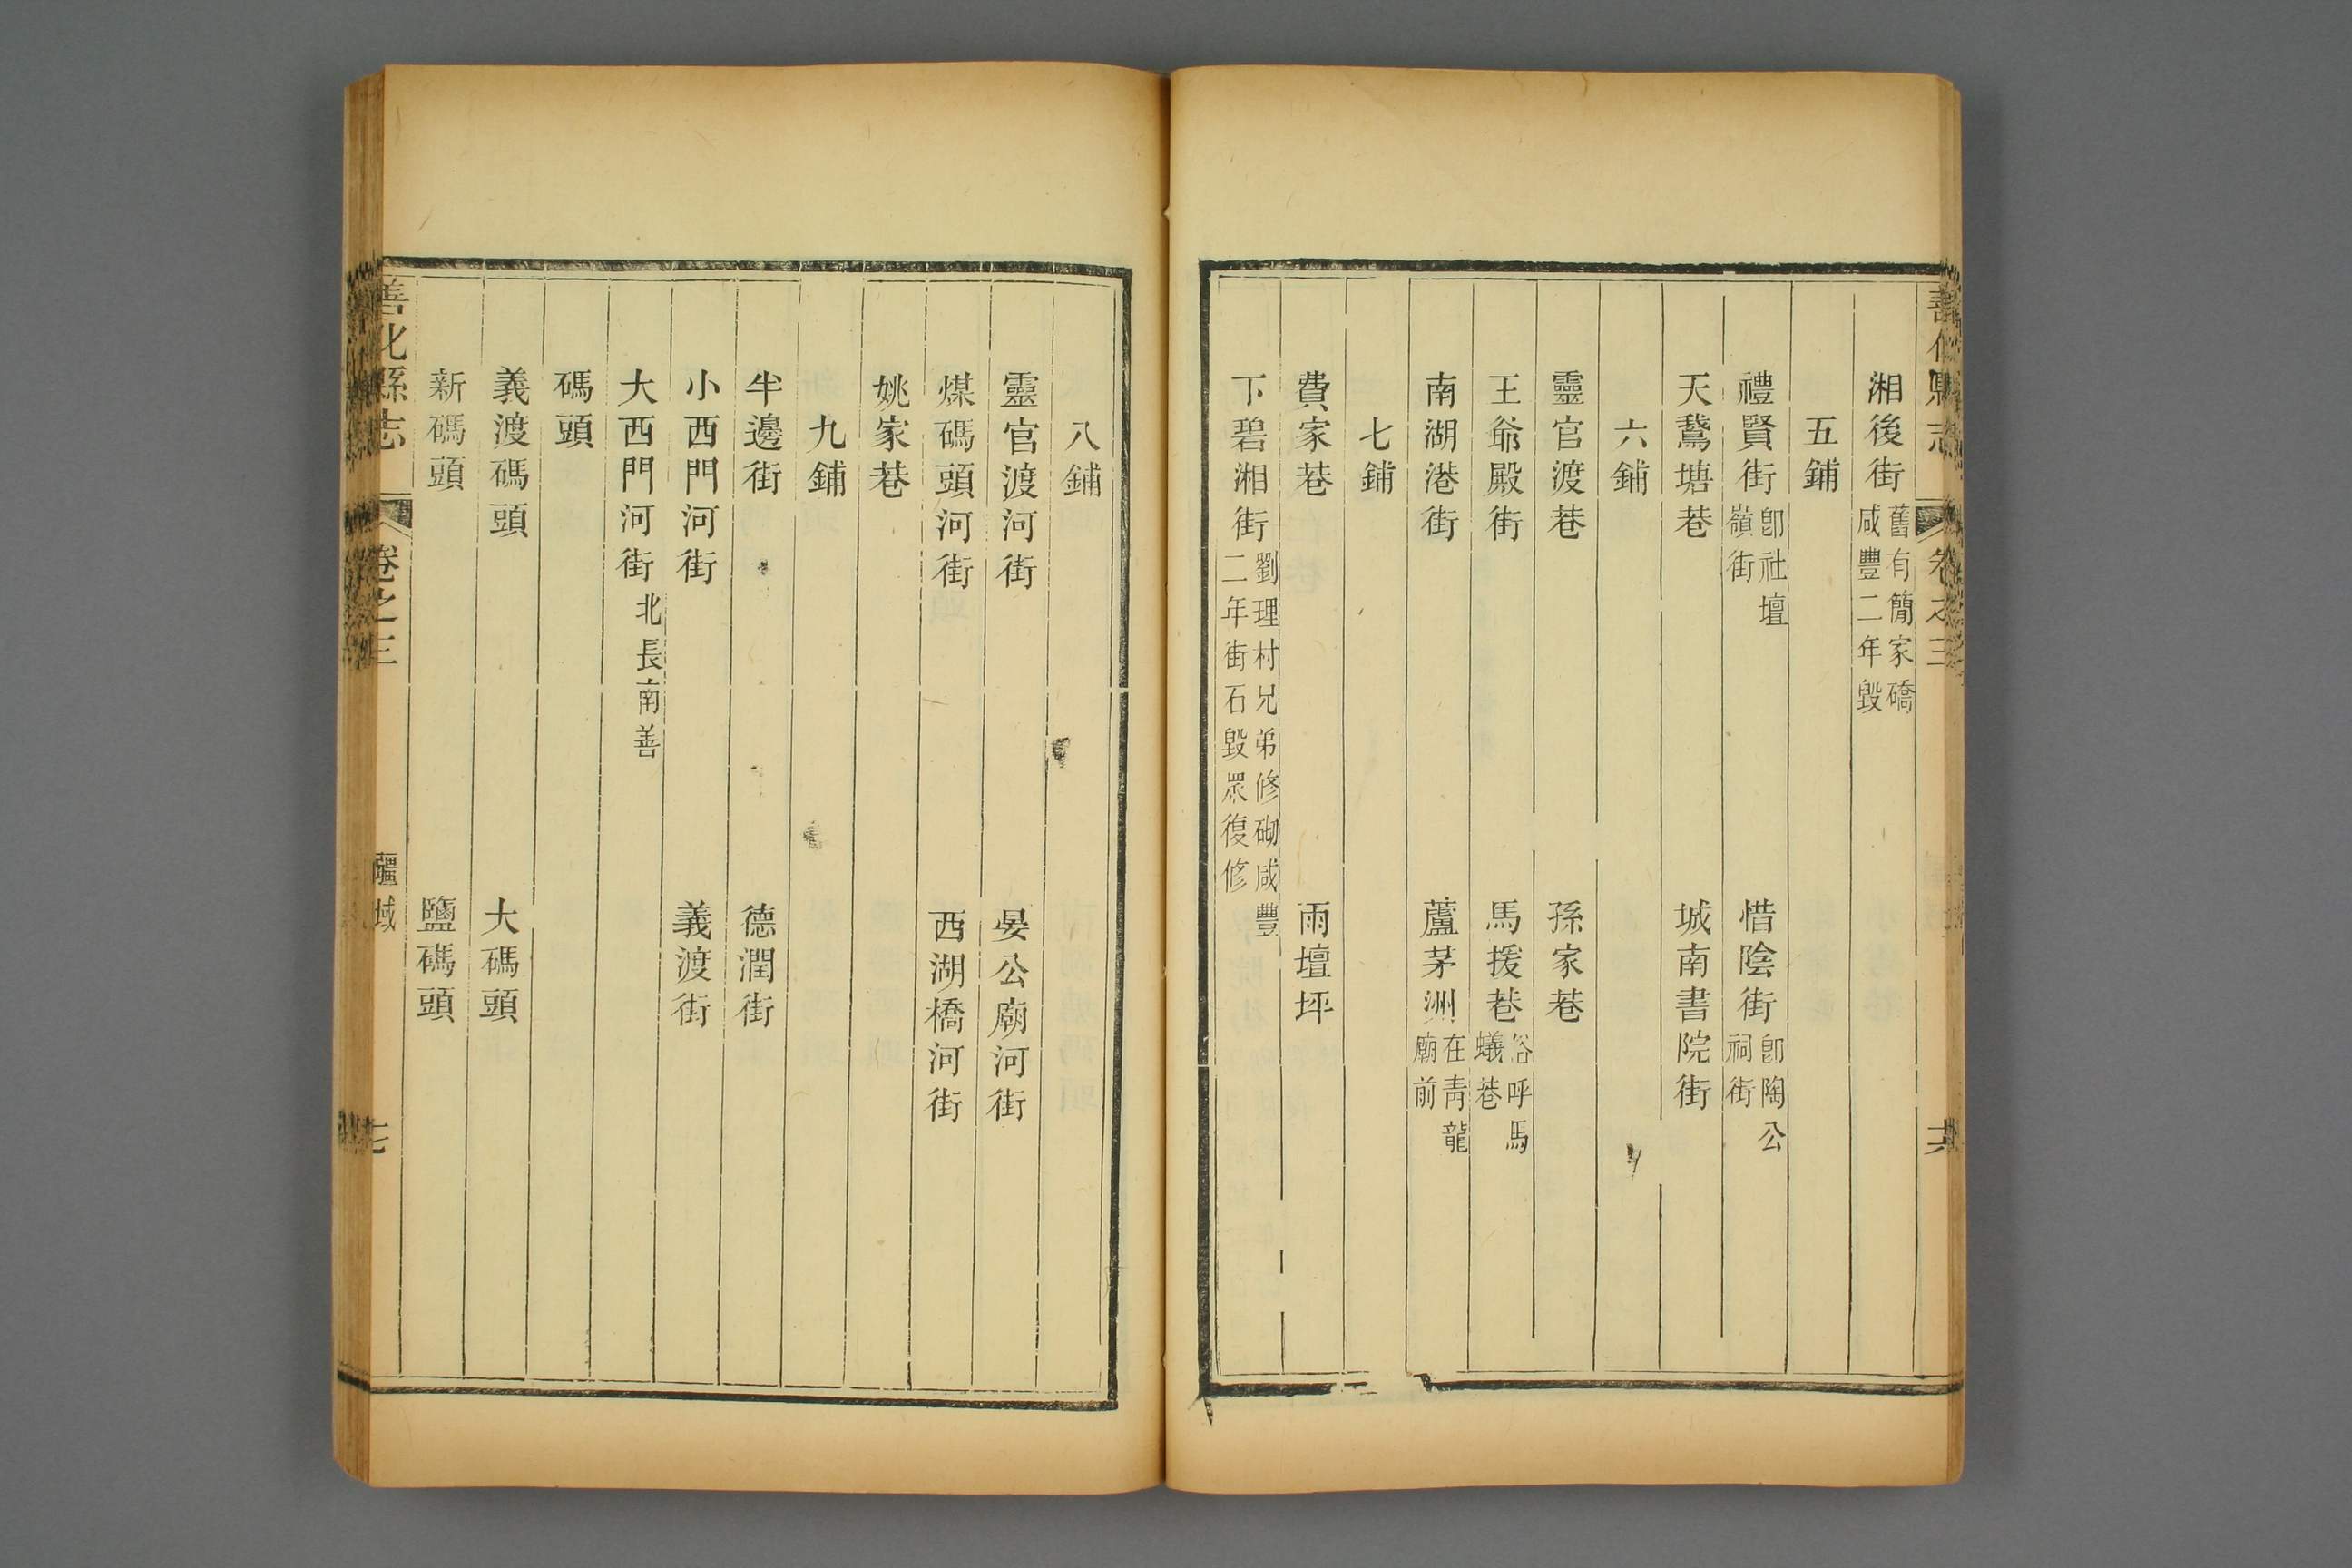 善化縣志 卷之三 十六
湘後街 舊有簡家礄咸豐二年毀
五鋪
禮賢街 卽社壇嶺街 惜陰街 卽陶公祠街
天鵞塘巷 城南書院街
六鋪
靈官渡巷 孫家巷
王爺殿街 馬援巷 俗呼馬蟻巷
南湖港街 蘆茅洲 在靑龍廟前
七鋪
費家巷 雨壇坪
下碧湘街 劉理村兄弟修砌咸豐二年街石毀眾復修
八鋪
靈官渡河街 晏公廟河街
煤碼頭河街 西湖橋河街
姚家巷
九鋪
半邊街 德潤街
小西門河街 義渡街
大西門河街 北長南善
碼頭
義渡碼頭 大碼頭
新碼頭 鹽碼頭
善化縣志 卷之三 疆域 十七